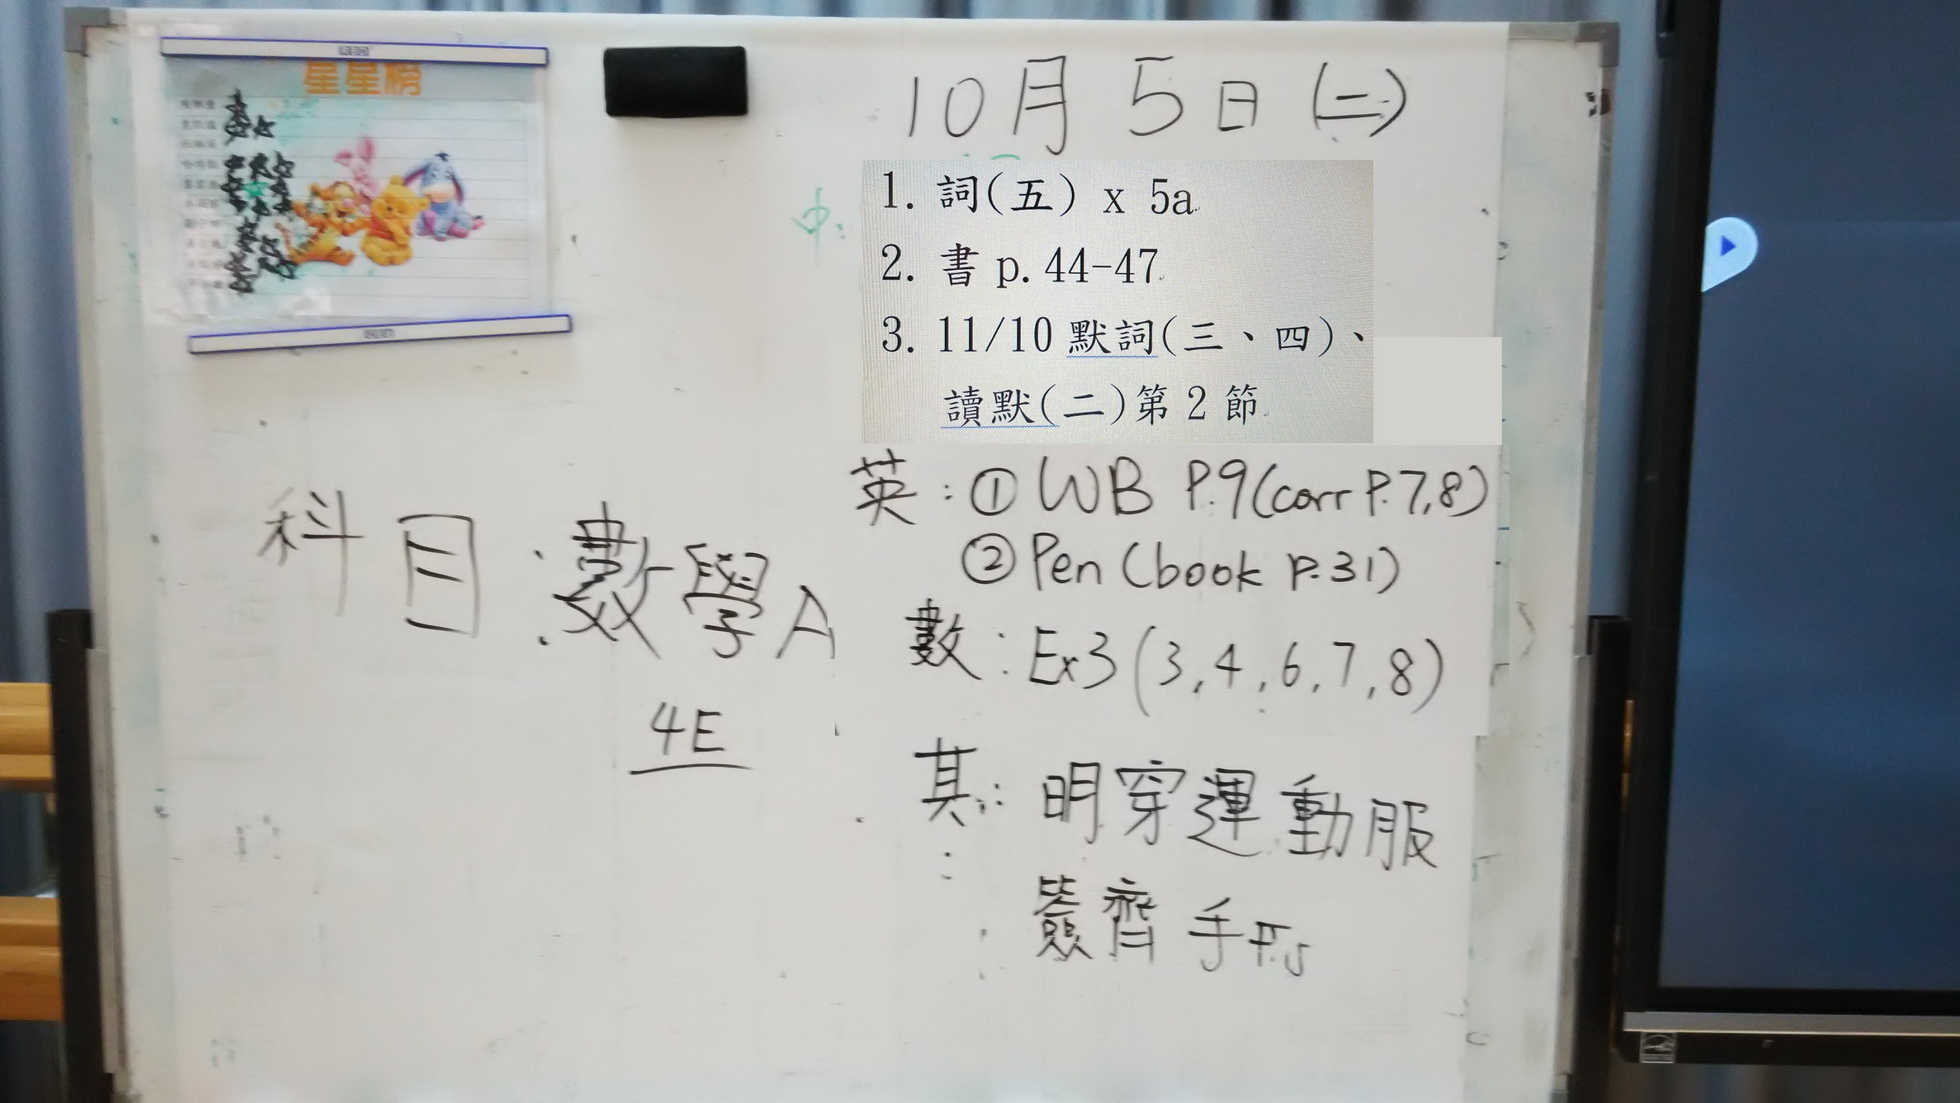 星星榜
10月5日(二)
中:
1. 詞(五) x 5a
2. 書 p. 44-47
3. 11/10 默詞(三、四)、
讀默(二)第 2 節
英:① WB P.9(corr P.7,8)
② Pen (book P.31)
數:Ex3(3,4,6,7,8)
其:明穿運動服
簽齊手冊
科目:數學A
4E